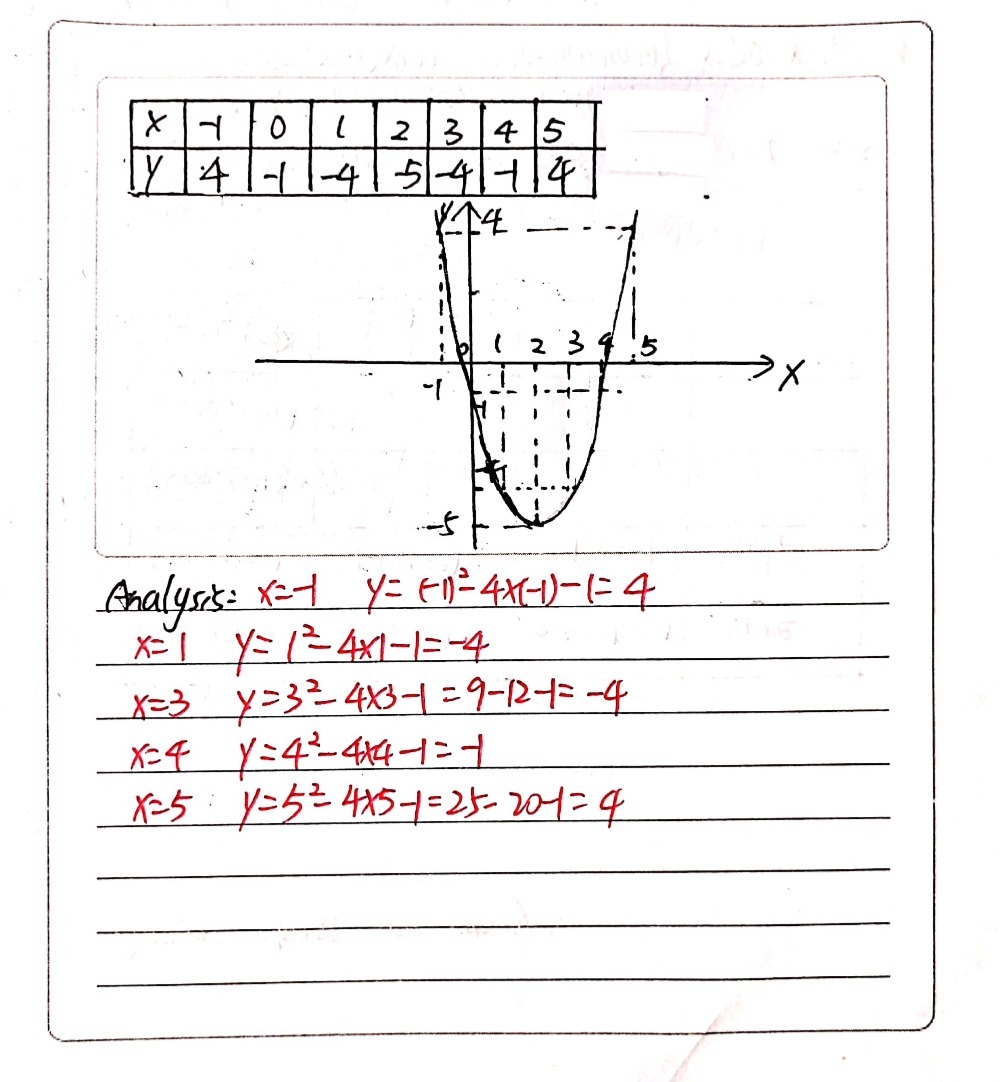 x -1 0 1 2 3 4 5
y 4 -1 -4 -5 -4 -1 4
y 4
0 1 2 3 4 5
x
-1
-1
-4
-5
Analysis: x=-1 y=(-1)²-4×(-1)-1=4
x=1 y=1²-4×1-1=-4
x=3 y=3²-4×3-1=9-12-1=-4
x=4 y=4²-4×4-1=-1
x=5 y=5²-4×5-1=25-20-1=4